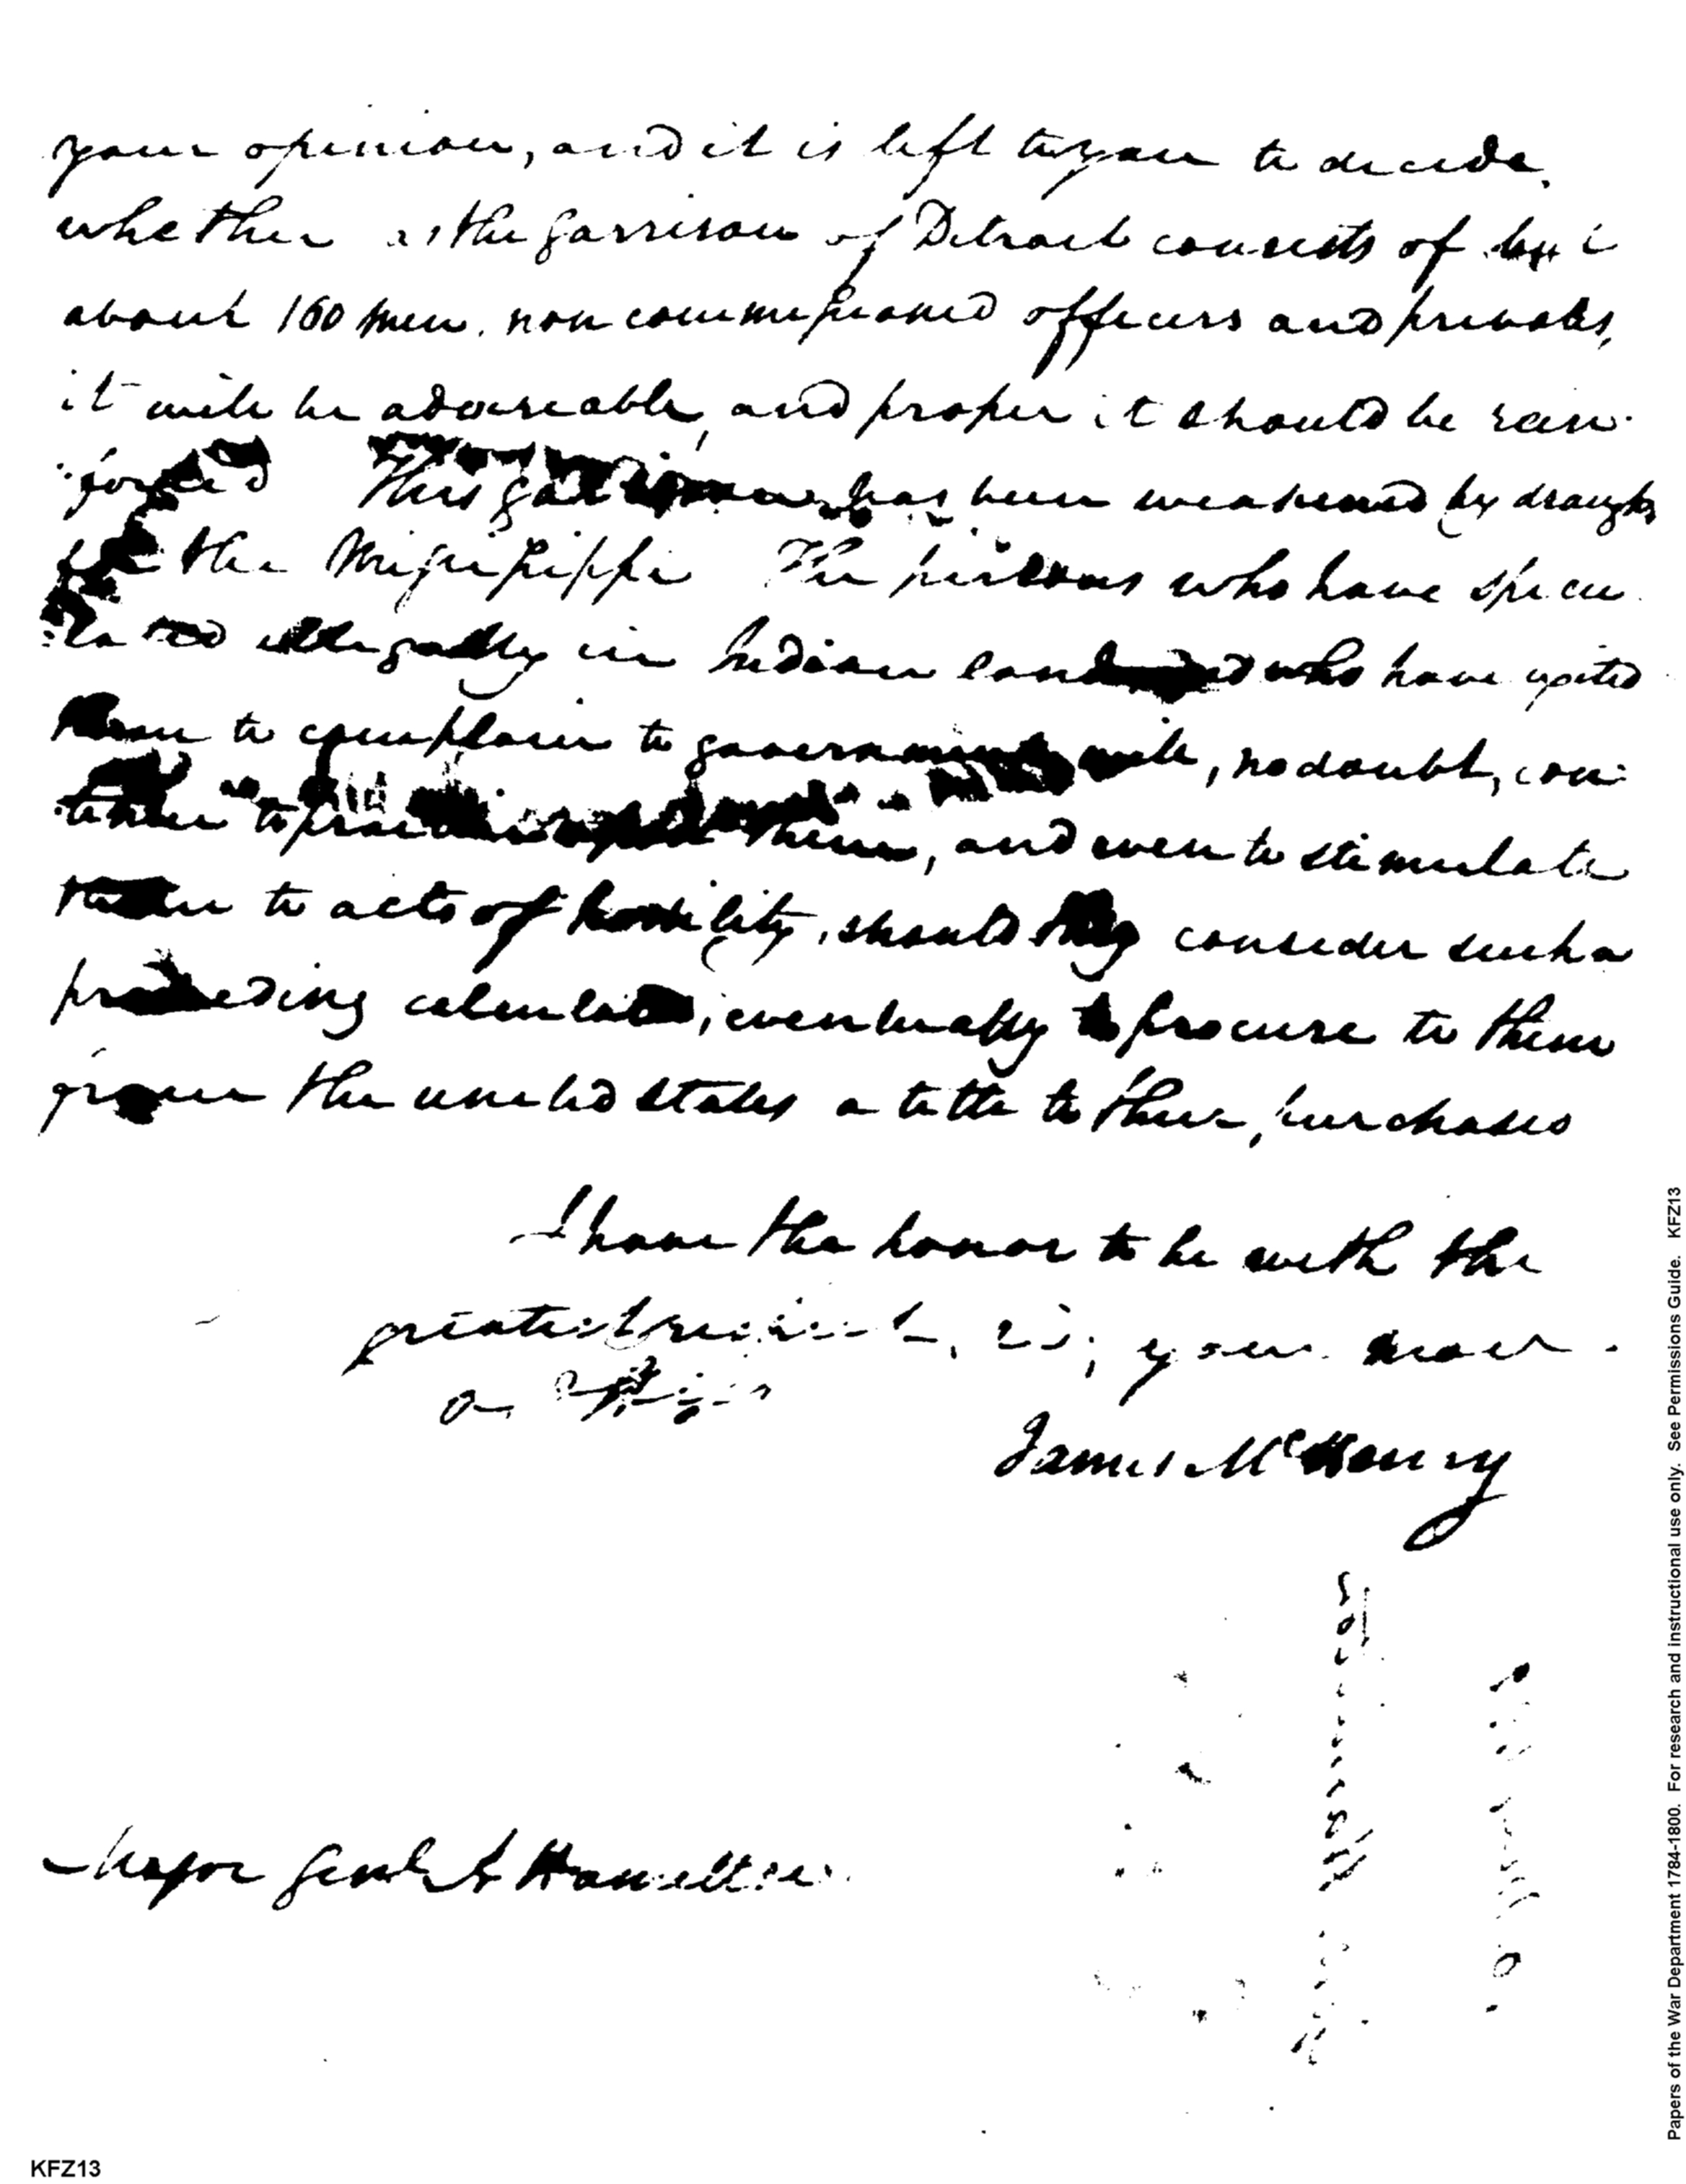 your opinion, and it is left to you to decide,
whether as the garrison of Detroit consists of but
about 160 men. non commissioned officers and privates,
it will be adviseable, and proper it should be rein-
forced This garrison has been weakened by draughts
for the Missisippi The persons who have specu
lated illegally in Indian lands and who have excited
them to complain to government will, no doubt, con
tinue to practice upon them, and even to stimulate
them to acts of hostility, should they consider such a
proceeding calculated, eventually to procure to them
from the united States a title to their purchases
I have the honor to be with the
greatest respect, your
James McHenry
Major Genl A Hamilton
Papers of the War Department 1784-1800. For research and instructional use only. See Permissions Guide. KFZ13
KFZ13